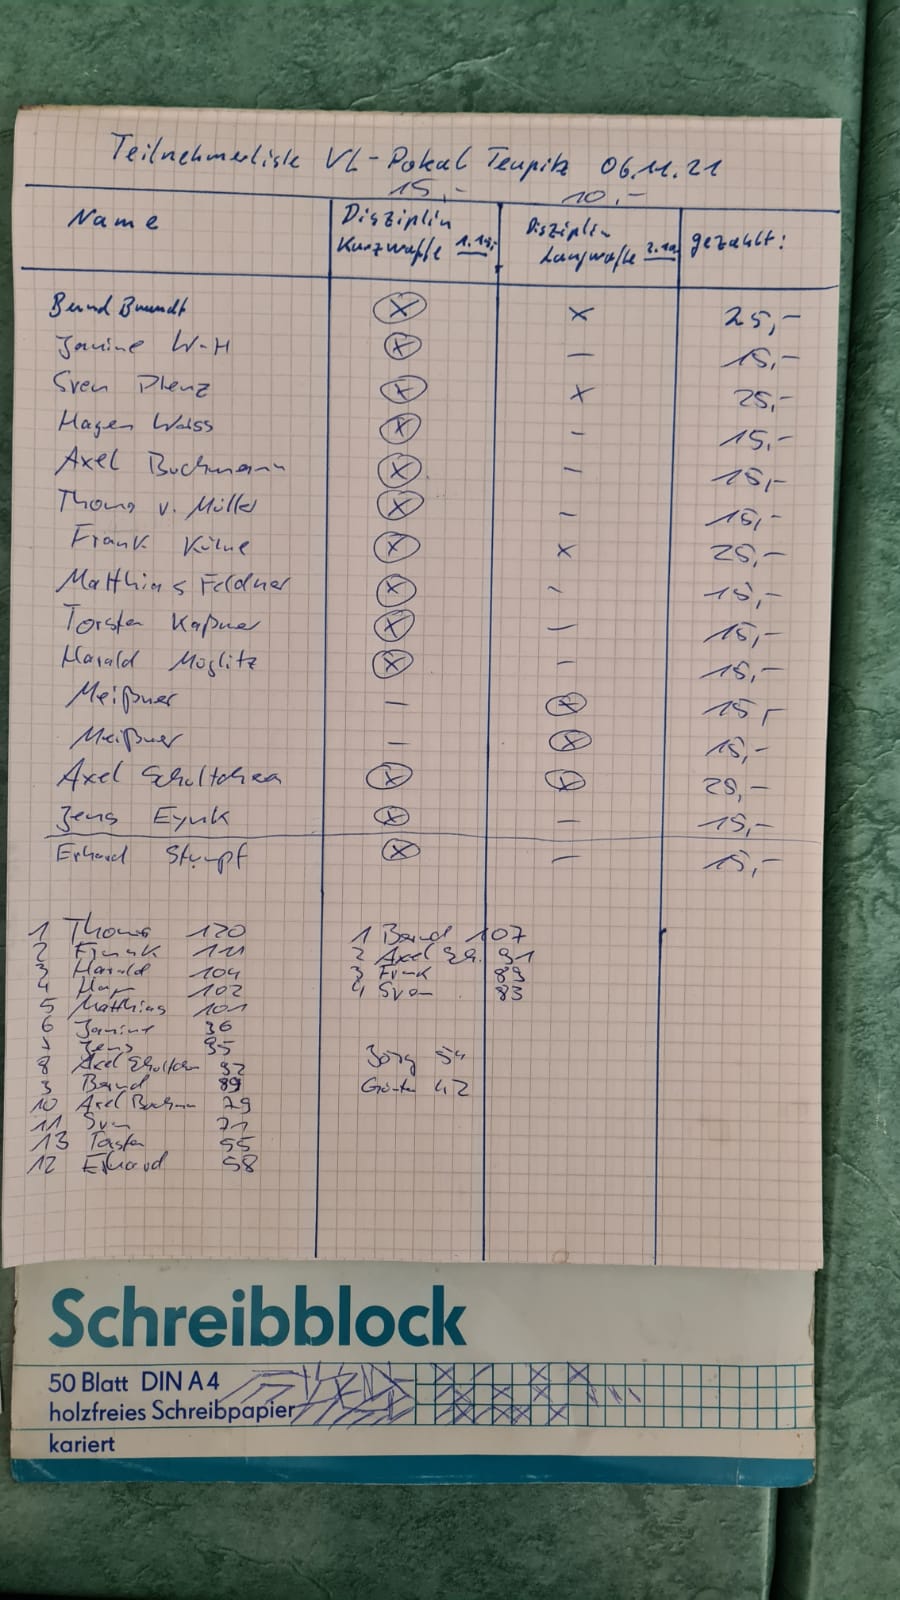 Teilnehmerliste VL-Pokal Teupitz 06.11.21
15,- 10,-
Name Disziplin Kurzwaffe Disziplin Langwaffe gezahlt:
Bernd Brundt x x 25,-
Janine W-H x - 15,-
Sven Plenz x x 25,-
Hagen Weiss x - 15,-
Axel Buchmann x - 15,-
Thoma v. Müller x - 15,-
Frank Kühne x x 25,-
Matthias Feldner x - 15,-
Torsten Kaßner x - 15,-
Harald Möglitz x - 15,-
Meißner - x 15,-
Meißner - x 15,-
Axel x x 25,-
Jens Eynk x - 15,-
Erhard Stumpf x - 15,-
1 Thoma 120
2 Frank 111
3 Harald 104
4 102
5 Matthias 101
6 Janine 96
7 Jens 95
8 Axel 92
9 Bernd 89
10 Axel Buchm 79
11 Sven 71
13 Torsten 55
12 Erhard 58
1 Bernd 107
2 Axel Sch. 91
3 Frank 89
4 Sven 83
Jörg 54
Günter 42
Schreibblock
50 Blatt DIN A4
holzfreies Schreibpapier
kariert